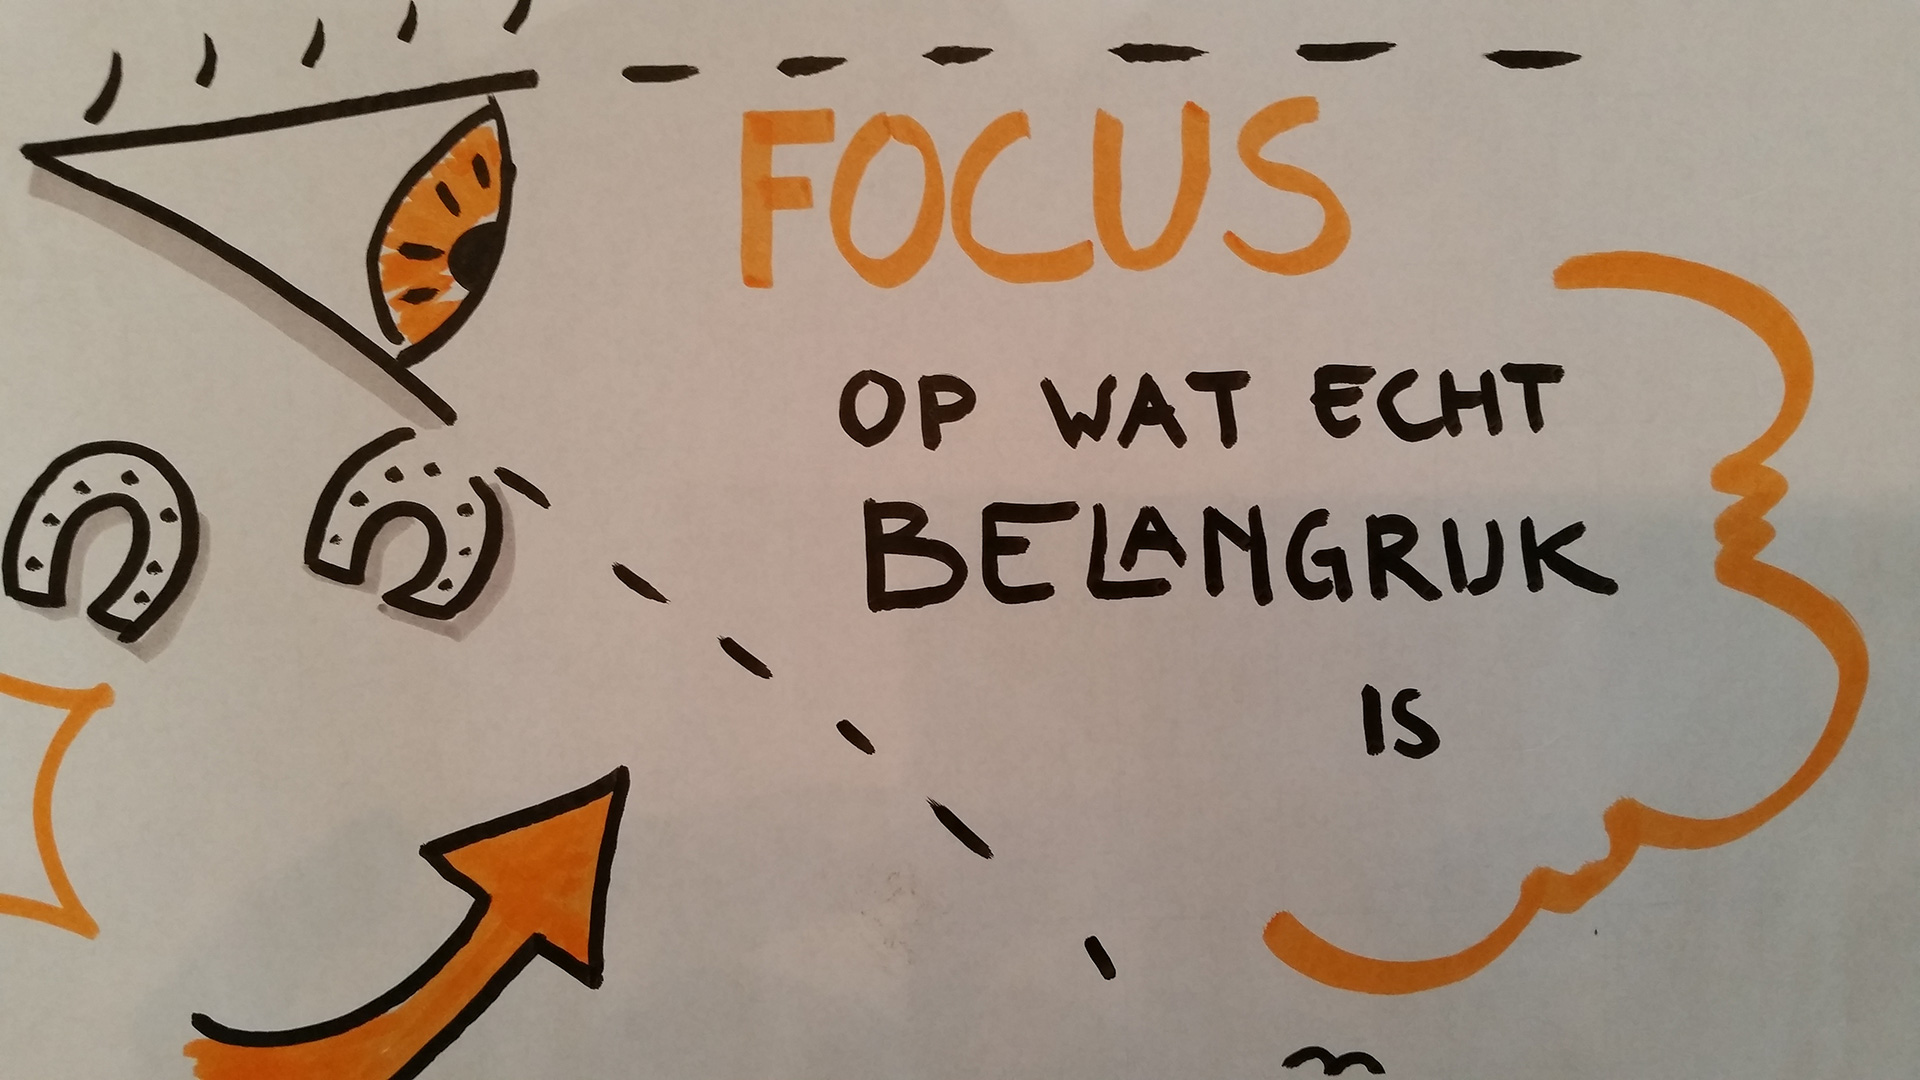 FOCUS
OP WAT ECHT
BELANGRIJK
IS